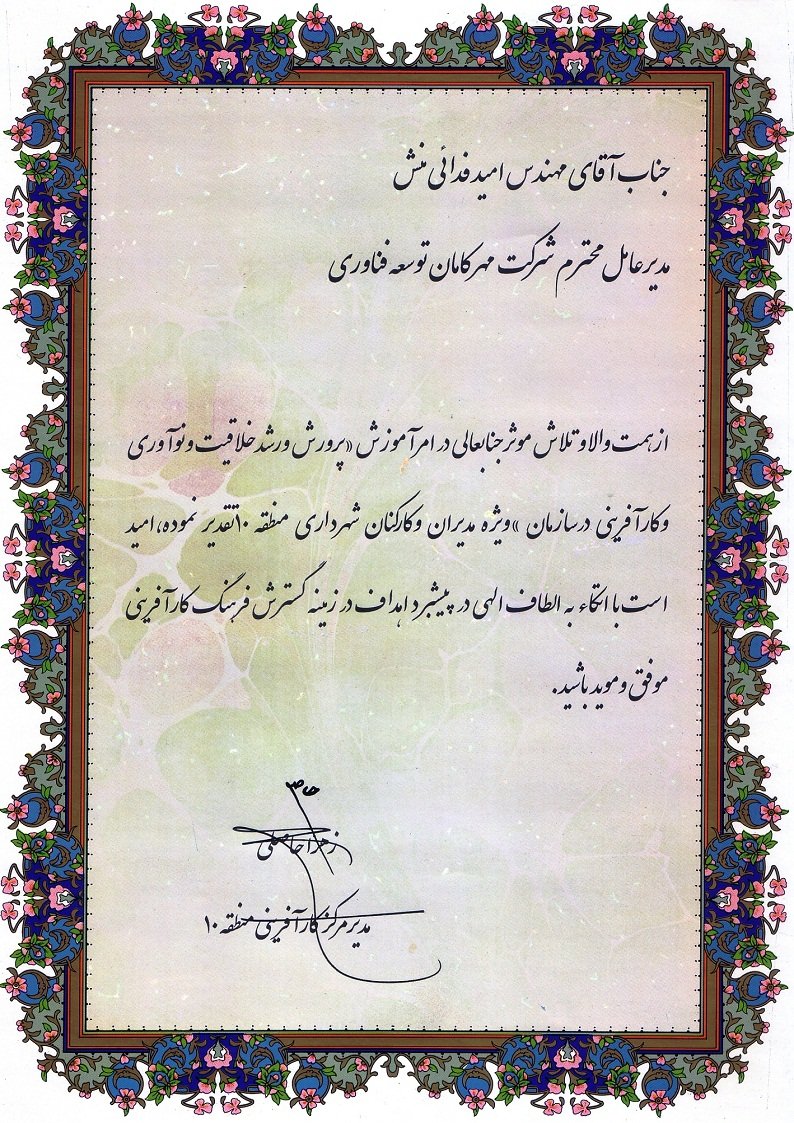 جناب آقای مهندس امید فدائی منش
مدیرعامل محترم شرکت مهرکامان توسعه فناوری
از همت والا و تلاش موثر جنابعالی در امر آموزش «پرورش و رشد خلاقیت و نوآوری
و کارآفرینی در سازمان» ویژه مدیران و کارکنان شهرداری منطقه ۱۰ تقدیر نموده، امید
است با اتکاء به الطاف الهی در پیشبرد اهداف در زمینه گسترش فرهنگ کارآفرینی
موفق و موید باشید.
زهرا
مدیر مرکز کارآفرینی منطقه ۱۰